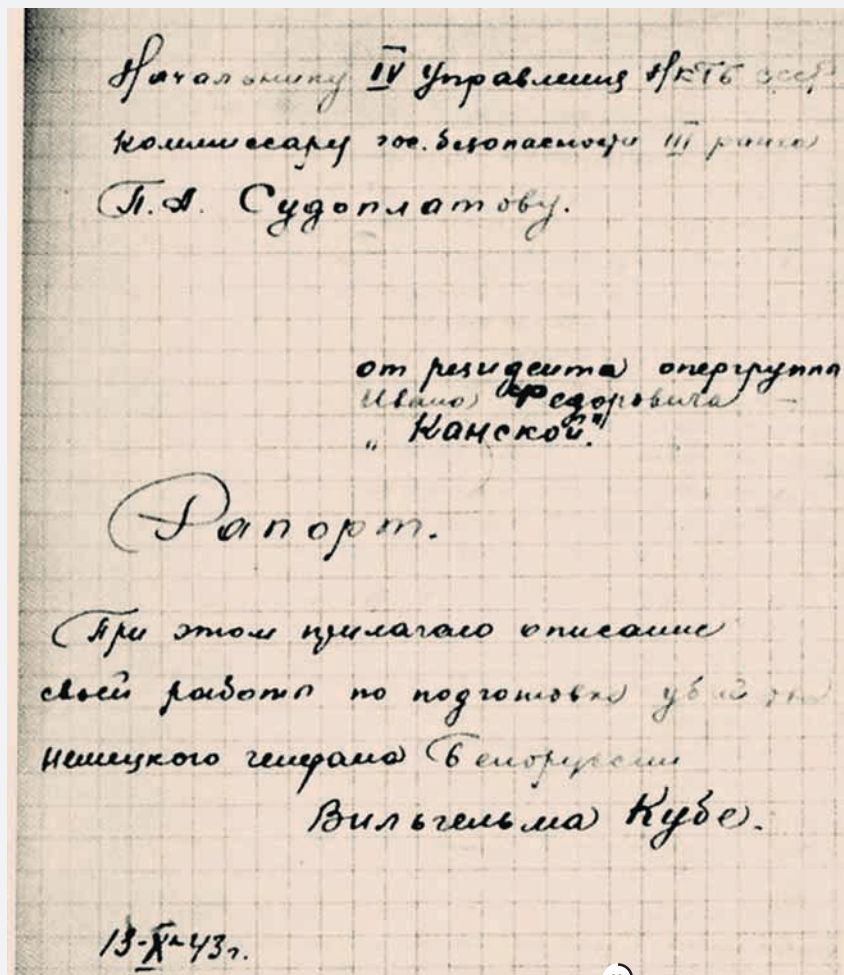 Начальнику IV Управления НКГБ СССР
Комиссару гос. безопасности III ранга
П.А. Судоплатову.
от резидента опергруппы
Ивана Федоровича
„Канской"
Рапорт.
При этом прилагаю описание
своей работы по подготовке
немецкого генерала Белоруссии
Вильгельма Кубе.
13-X-43г.